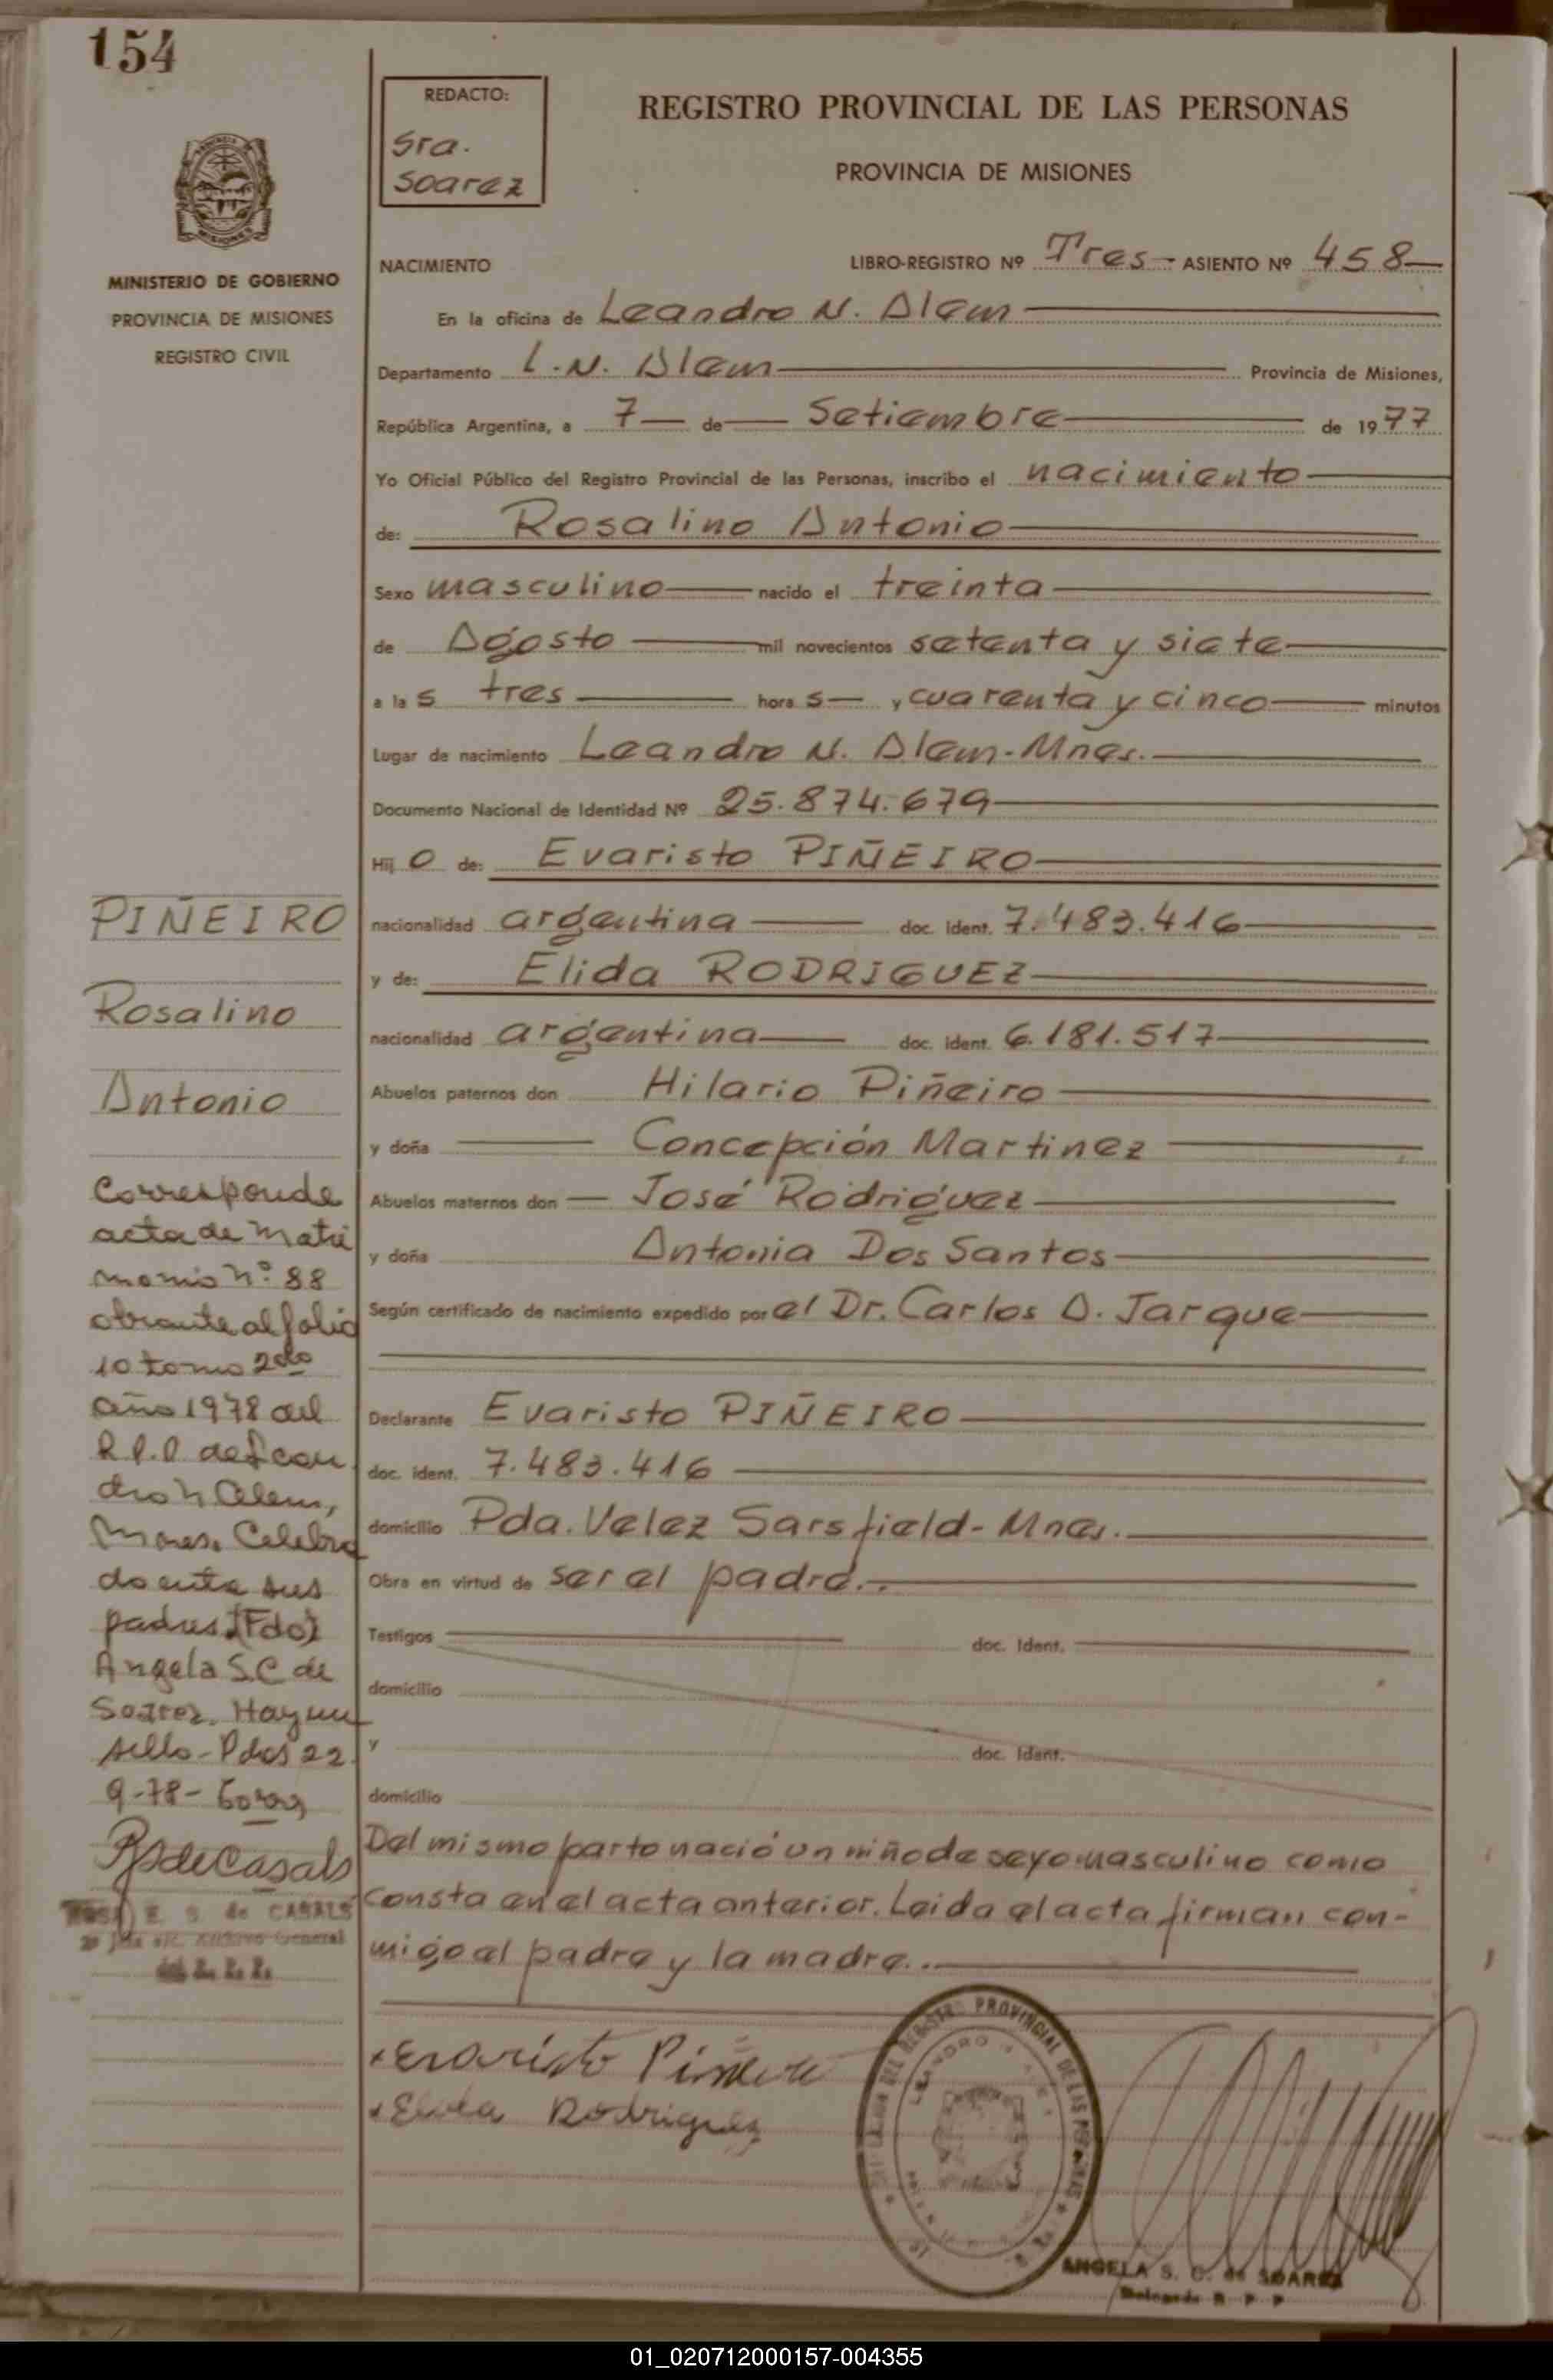 154
REDACTO:
Sra.
Soarez
REGISTRO PROVINCIAL DE LAS PERSONAS
PROVINCIA DE MISIONES
MINISTERIO DE GOBIERNO
PROVINCIA DE MISIONES
REGISTRO CIVIL
NACIMIENTO LIBRO-REGISTRO Nº Tres ASIENTO Nº 458
En la oficina de Leandro N. Alem
Departamento L.N. Alem Provincia de Misiones,
República Argentina, a 7 de Setiembre de 1977
Yo Oficial Público del Registro Provincial de las Personas, inscribo el nacimiento
de: Rosalino Antonio
Sexo masculino nacido el treinta
de Agosto mil novecientos setenta y siete
a las tres horas y cuarenta y cinco minutos
Lugar de nacimiento Leandro N. Alem-Mnes.
Documento Nacional de Identidad Nº 25.874.679
Hijo de: Evaristo PIÑEIRO
nacionalidad argentina doc. ident. 7.483.416
y de: Elida RODRIGUEZ
nacionalidad argentina doc. ident. 6.181.517
Abuelos paternos don Hilario Piñeiro
y doña Concepción Martinez
Abuelos maternos don José Rodriguez
y doña Antonia Dos Santos
Según certificado de nacimiento expedido por el Dr. Carlos A. Jarque
Declarante Evaristo PIÑEIRO
doc. ident. 7.483.416
domicilio Pda. Velez Sarsfield-Mnes.
Obra en virtud de ser el padre..
Testigos doc. Ident.
domicilio
y doc. Ident.
domicilio
Del mismo parto nació un niño de sexo masculino como
consta en el acta anterior. Leida el acta firman con-
migo el padre y la madre..
PIÑEIRO
Rosalino
Antonio
Corresponde
acta de matri
monio nº 88
obrante al folio
10 tomo 2do
año 1978 del
R.P.P de Lean
dro N Alem,
Mnes. Celebra
do entre sus
padres.(Fdo)
Angela S.C de
Soarez. Hay un
sello-Pdas 22
9-78-
de Casals
ROSA E. S. de CASALS
Archivo General
Evaristo Piñeiro
Elida Rodriguez
REGISTRO PROVINCIAL DE LAS PERSONAS
LEANDRO N
ANGELA S. C. de SOAREZ
Delegada R P P
01_020712000157-004355